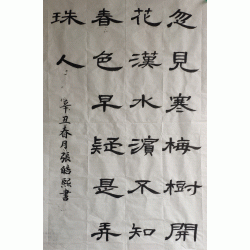 忽見寒梅樹開
花漢水濱不知
春色早疑是弄
珠人
辛丑春月張熙書